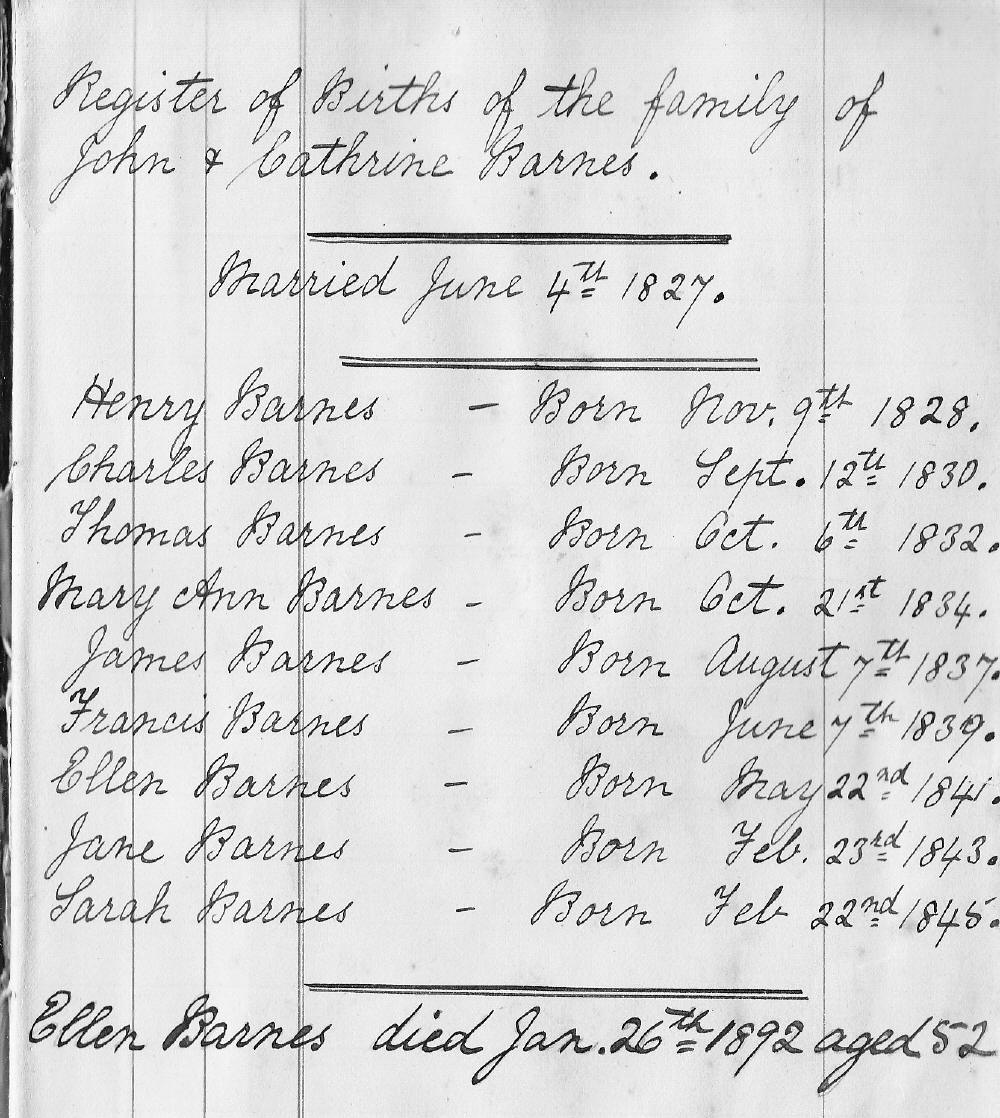 Register of Births of the family of
John & Cathrine Barnes.
Married June 4th 1827.
Henry Barnes – Born Nov. 9th 1828.
Charles Barnes – Born Sept. 12th 1830.
Thomas Barnes – Born Oct. 6th 1832.
Mary Ann Barnes – Born Oct. 21st 1834.
James Barnes – Born August 7th 1837.
Francis Barnes – Born June 7th 1839.
Ellen Barnes – Born May 22nd 1841.
Jane Barnes – Born Feb. 23rd 1843.
Sarah Barnes – Born Feb 22nd 1845.
Ellen Barnes died Jan. 26th 1892 aged 52